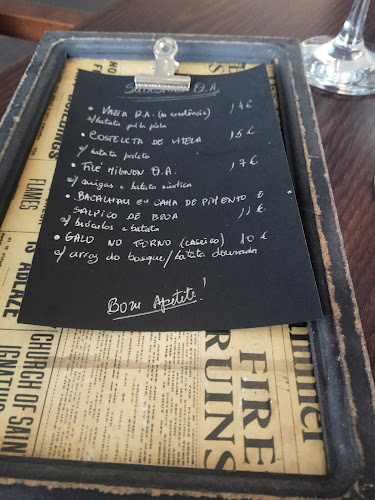 SUGESTÕES D.A.
• VAZIA D.A. (a excelência) 14€
c/batata palha
• COSTELETA DE VITELA 15€
c/ batata palito
• FILÉ MIGNON D.A. 17€
c/ migas e batata rústica
• BACALHAU EM CAMA DE PIMENTO E
SALPICO DE BROA 11€
c/ batata
• GALO NO FORNO (CASEIRO) 10€
c/ arroz do bosque/batata dourada
Bom Apetite!
BUILDINGS
FLAMES
IS ABLAZE
CHURCH OF SAIN
IGNATIUS
FIRE
RUINS